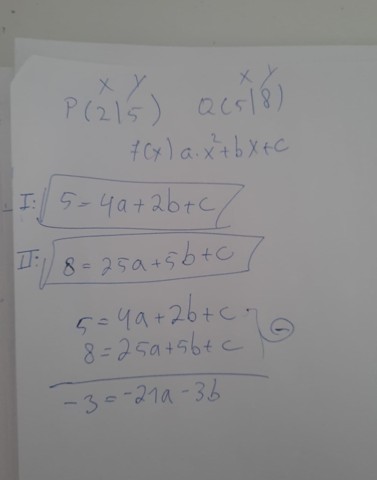 x y x y
P(2|5) Q(5|8)
f(x) a·x²+bx+c
I: 5=4a+2b+c
II: 8=25a+5b+c
5=4a+2b+c
8=25a+5b+c -
-3=-21a-3b